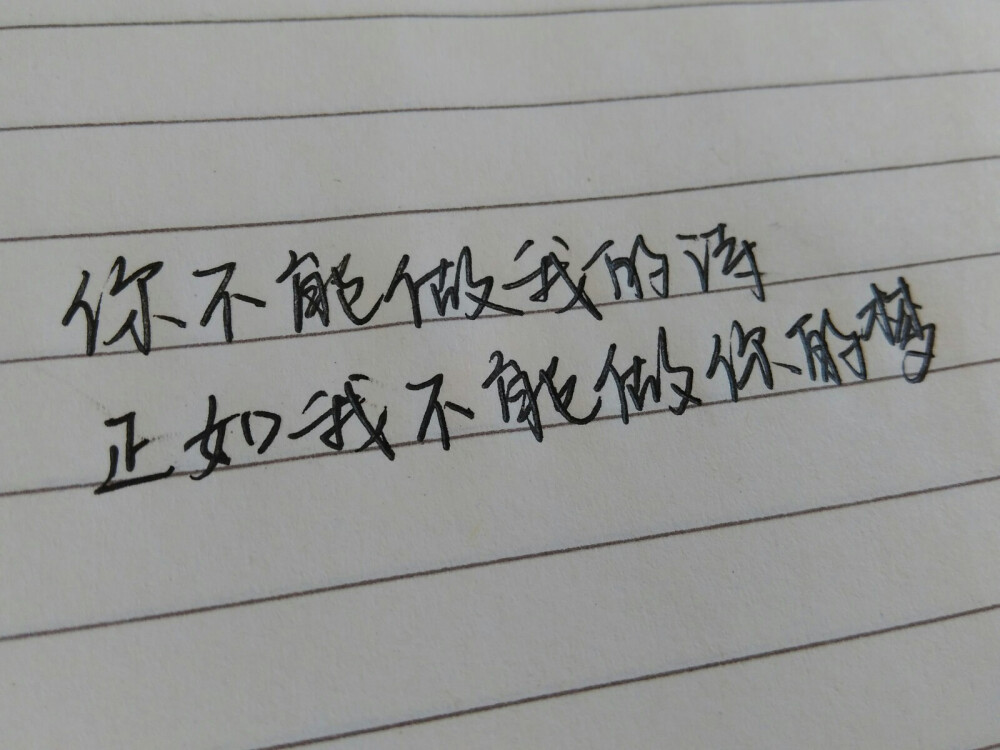 你不能做我的诗
正如我不能做你的梦